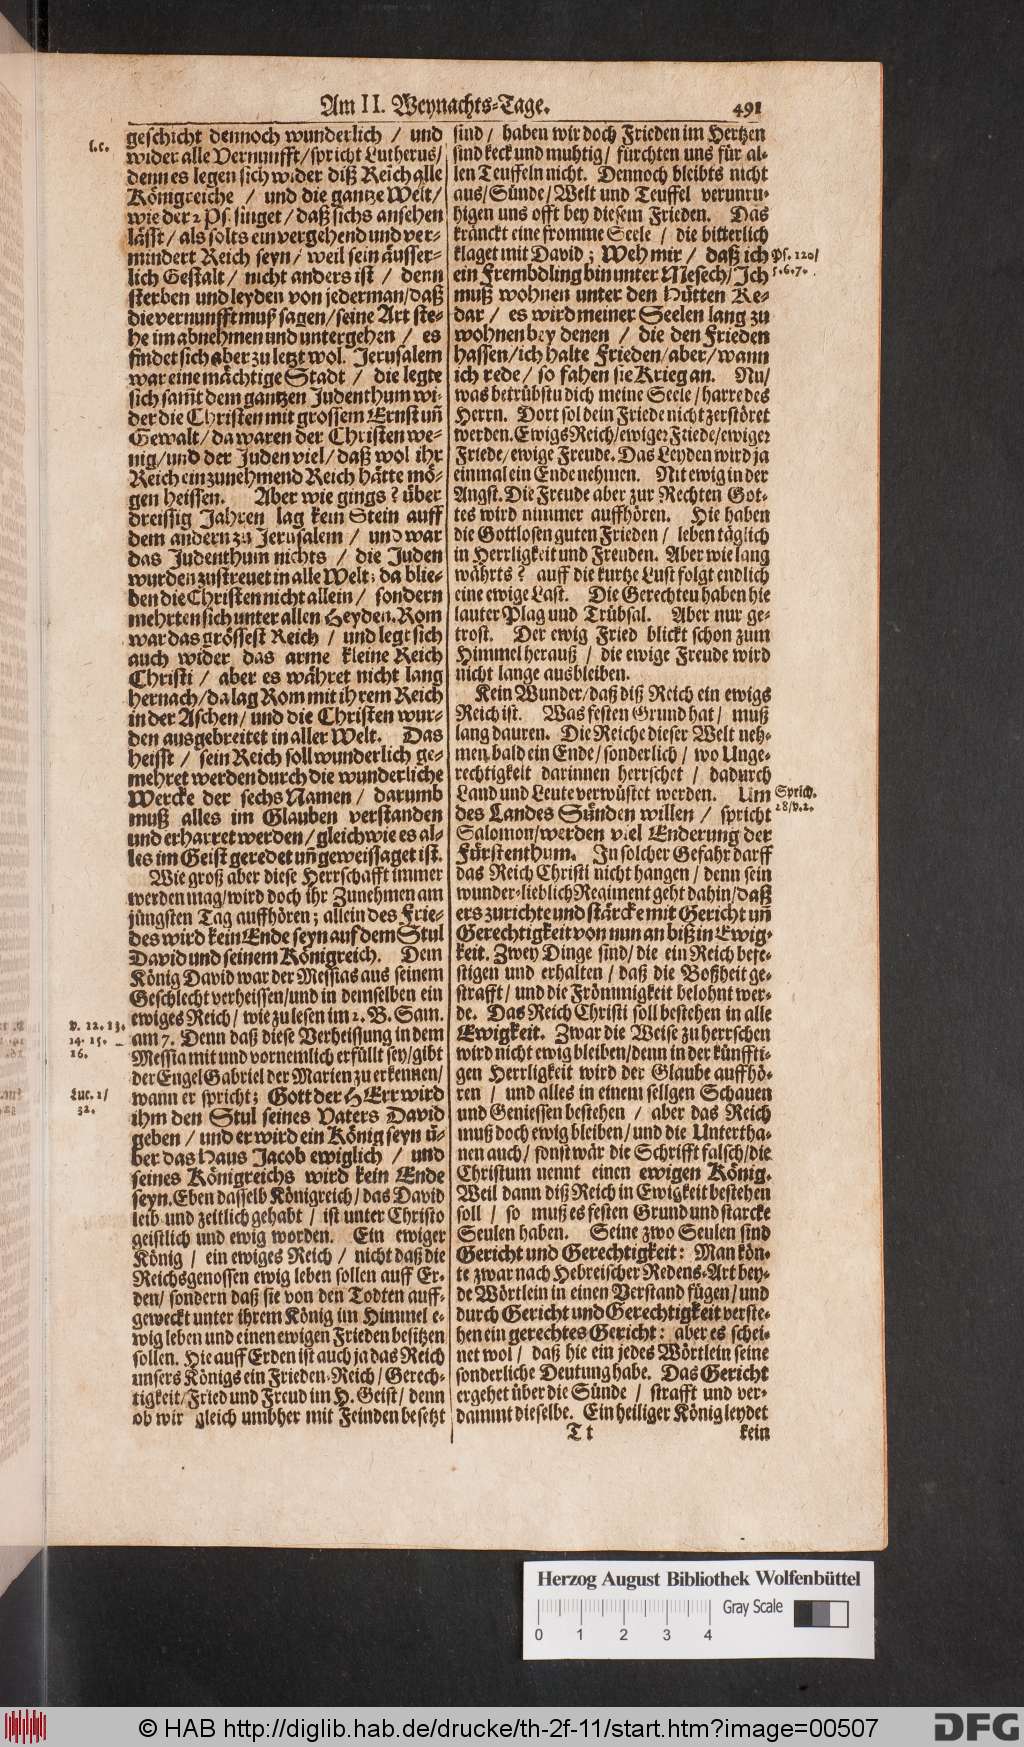 Am II. Weynachts-Tage. 491
l.c.
geschicht dennoch wunderlich / und
wider alle Vernunfft/spricht Lutherus/
denn es legen sich wider diß Reich alle
Königreiche / und die gantze Welt/
wie der 2 Ps. singet/ daß sichs ansehen
lässt/ als solts ein vergehend und ver-
mindert Reich seyn/ weil sein äusser-
lich Gestalt/ nicht anders ist / denn
sterben und leyden von jederman/daß
die vernunfft muß sagen/seine Art ste-
he im abnehmen und untergehen / es
findet sich aber zu letzt wol. Jerusalem
war eine mächtige Stadt / die legte
sich sam̃t dem gantzen Judenthum wi-
der die Christen mit grossem Ernst uñ
Gewalt/ da waren der Christen we-
nig/und der Juden viel/ daß wol ihr
Reich ein zunehmend Reich hätte mö-
gen heissen. Aber wie gings? über
dreissig Jahren lag kein Stein auff
dem andern zu Jerusalem / und war
das Judenthum nichts / die Juden
wurden zustreuet in alle Welt; da blie-
ben die Christen nicht allein / sondern
mehrten sich unter allen Heyden. Rom
war das grössest Reich / und legt sich
auch wider das arme kleine Reich
Christi / aber es währet nicht lang
hernach/ da lag Rom mit ihrem Reich
in der Aschen/ und die Christen wur-
den ausgebreitet in aller Welt. Das
heisst / sein Reich soll wunderlich ge-
mehret werden durch die wunderliche
Wercke der sechs Namen / darumb
muß alles im Glauben verstanden
und erharret werden/ gleich wie es al-
les im Geist geredet uñ geweissaget ist.
Wie groß aber diese Herrschafft immer
werden mag/ wird doch ihr Zunehmen am
jüngsten Tag auffhören; allein des Frie-
des wird kein Ende seyn auf dem Stul
David und seinem Königreich. Dem
König David war der Messias aus seinem
Geschlecht verheissen/und in demselben ein
ewiges Reich/ wie zu lesen im 2. B. Sam.
v. 12. 13.
14. 15.
16.
am 7. Denn daß diese Verheissung in dem
Messia mit und vornemlich erfüllt sey/ gibt
der Engel Gabriel der Marien zu erkennen/
Luc. 1/
32.
wann er spricht; Gott der HErr wird
ihm den Stul seines Vaters David
geben / und er wird ein König seyn ü-
ber das Haus Jacob ewiglich / und
seines Königreichs wird kein Ende
seyn. Eben dasselb Königreich/ das David
leib- und zeitlich gehabt / ist unter Christo
geistlich und ewig worden. Ein ewiger
König / ein ewiges Reich / nicht daß die
Reichsgenossen ewig leben sollen auff Er-
den/ sondern daß sie von den Todten auff-
geweckt unter ihrem König im Himmel e-
wig leben und einen ewigen Frieden besitzen
sollen. Hie auff Erden ist auch ja das Reich
unsers Königs ein Frieden-Reich/ Gerech-
tigkeit/ Fried und Freud im H. Geist/ denn
ob wir gleich umbher mit Feinden besetzt
sind / haben wir doch Frieden im Hertzen
sind keck und muhtig/ fürchten uns für al-
len Teuffeln nicht. Dennoch bleibts nicht
aus/ Sünde/ Welt und Teuffel verunru-
higen uns offt bey diesem Frieden. Das
kränckt eine fromme Seele / die bitterlich
klaget mit David; Weh mir / daß ich
Ps. 120/
5.6.7.
ein Frembdling bin unter Mesech/ Ich
muß wohnen unter den Hütten Ke-
dar / es wird meiner Seelen lang zu
wohnen bey denen / die den Frieden
hassen/ich halte Frieden/aber/wann
ich rede/ so fahen sie Krieg an. Nu/
was betrübstu dich meine Seele/ harre des
Herrn. Dort sol dein Friede nicht zerstöret
werden. Ewigs Reich/ewiger Friede/ewiger
Friede/ ewige Freude. Das Leyden wird ja
einmal ein Ende nehmen. Nit ewig in der
Angst. Die Freude aber zur Rechten Got-
tes wird nimmer auffhören. Hie haben
die Gottlosen guten Frieden / leben täglich
in Herrligkeit und Freuden. Aber wie lang
währts? auff die kurtze Lust folgt endlich
eine ewige Last. Die Gerechten haben hie
lauter Plag und Trübsal. Aber nur ge-
trost. Der ewig Fried blickt schon zum
Himmel herauß / die ewige Freude wird
nicht lange ausbleiben.
Kein Wunder/ daß diß Reich ein ewigs
Reich ist. Was festen Grund hat / muß
lang dauren. Die Reiche dieser Welt neh-
men bald ein Ende/ sonderlich / wo Unge-
rechtigkeit darinnen herrschet / dadurch
Land und Leute verwüstet werden. Um
Sprich.
28/v.2.
des Landes Sünden willen / spricht
Salomon/werden viel Enderung der
Fürstenthum. In solcher Gefahr darff
das Reich Christi nicht hangen / denn sein
wunder-lieblich Regiment geht dahin/ daß
ers zurichte und stärcke mit Gericht uñ
Gerechtigkeit von nun an biß in Ewig-
keit. Zwey Dinge sind/ die ein Reich befe-
stigen und erhalten / daß die Boßheit ge-
strafft / und die Frömmigkeit belohnt wer-
de. Das Reich Christi soll bestehen in alle
Ewigkeit. Zwar die Weise zu herrschen
wird nicht ewig bleiben/denn in der künffti-
gen Herrligkeit wird der Glaube auffhö-
ren / und alles in einem seligen Schauen
und Geniessen bestehen / aber das Reich
muß doch ewig bleiben/ und die Untertha-
nen auch/ sonst wär die Schrifft falsch/die
Christum nennt einen ewigen König.
Weil dann diß Reich in Ewigkeit bestehen
soll / so muß es festen Grund und starcke
Seulen haben. Seine zwo Seulen sind
Gericht und Gerechtigkeit: Man kön-
te zwar nach Hebreischer Redens-Art bey-
de Wörtlein in einen Verstand fügen/ und
durch Gericht und Gerechtigkeit verste-
hen ein gerechtes Gericht: aber es schei-
net wol / daß hie ein jedes Wörtlein seine
sonderliche Deutung habe. Das Gericht
ergehet über die Sünde / strafft und ver-
dammt dieselbe. Ein heiliger König leydet
T t kein
Herzog August Bibliothek Wolfenbüttel
Gray Scale
0 1 2 3 4
© HAB http://diglib.hab.de/drucke/th-2f-11/start.htm?image=00507
DFG